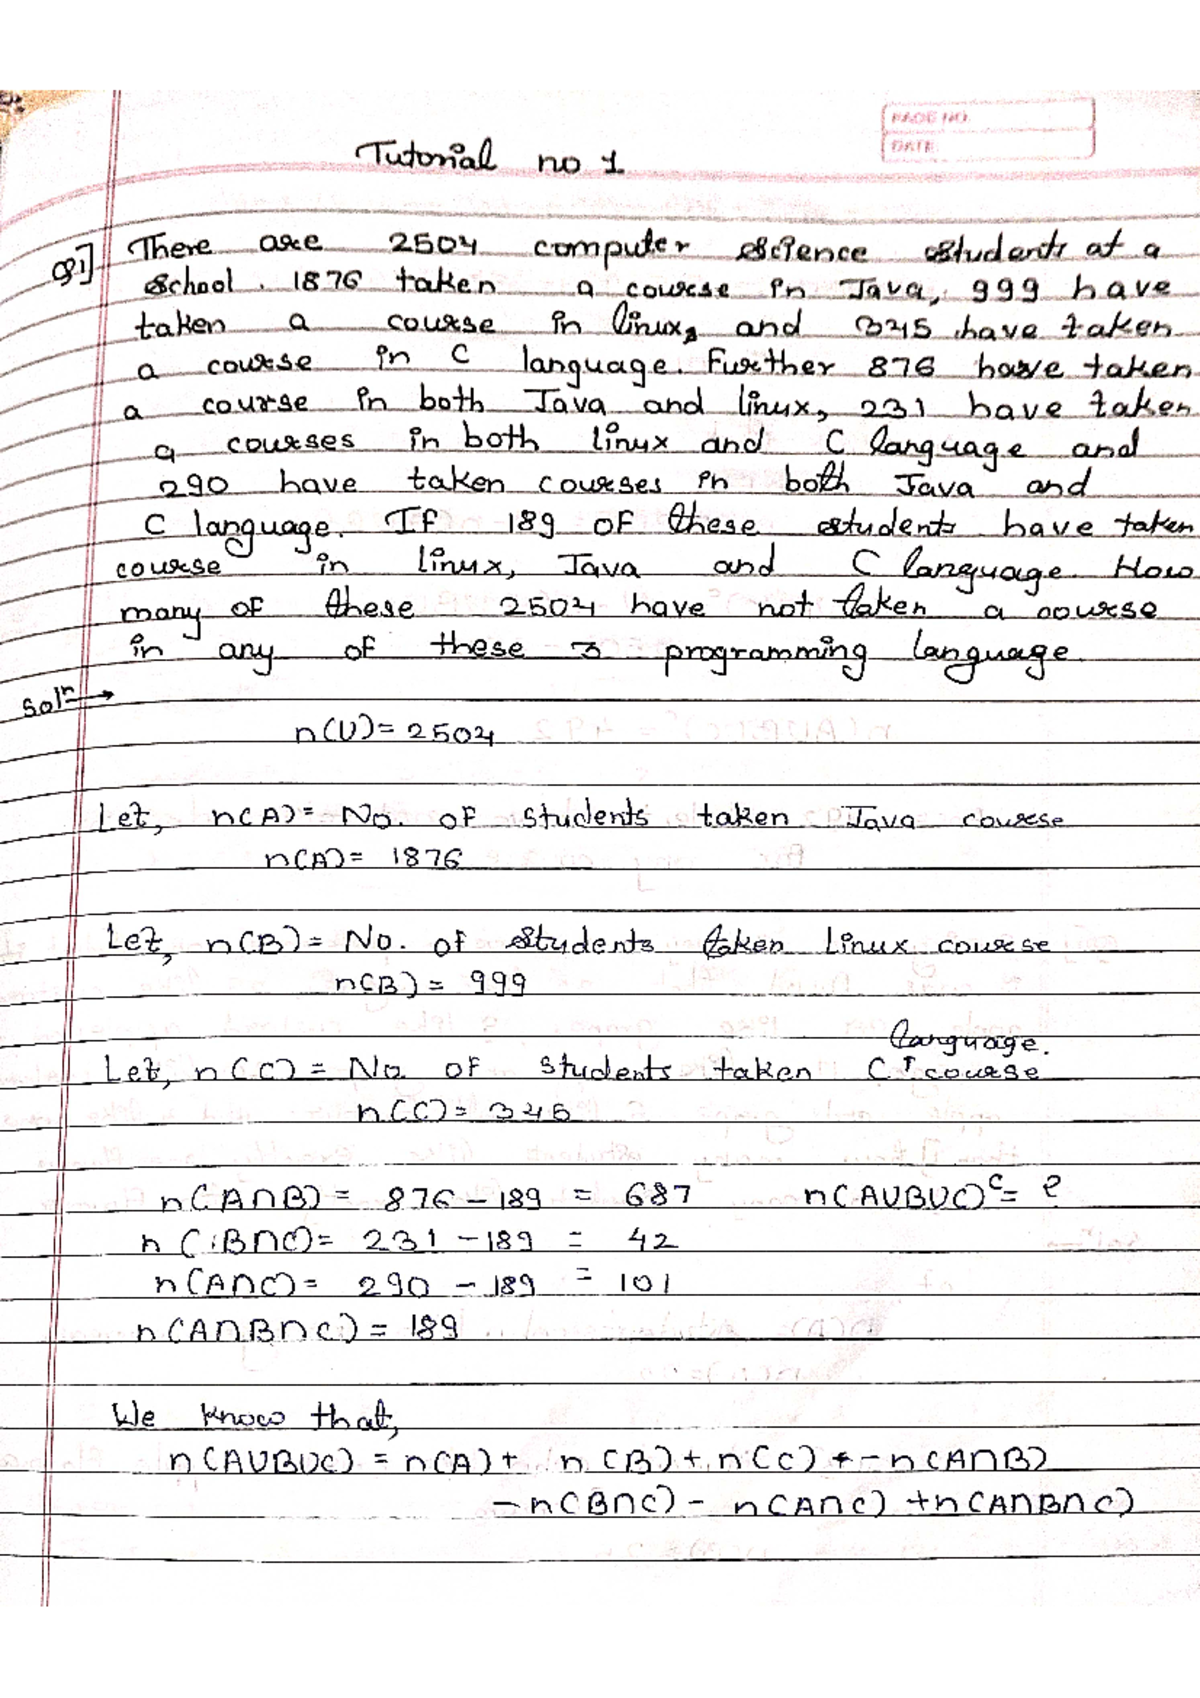 PAGE NO.
DATE
Tutorial no 1
Q1] There are 2504 computer science students at a
school. 1876 taken a course in Java, 999 have
taken a course in linux, and 345 have taken
a course in C language. Further 876 have taken
a course in both Java and linux, 231 have taken
a courses in both linux and C language and
290 have taken courses in both Java and
C language. If 189 of these students have taken
course in linux, Java and C language. How
many of these 2504 have not taken a course
in any of these 3 programming language.
Solⁿ →
n(U) = 2504
Let, n(A) = No. of students taken Java course
n(A) = 1876
Let, n(B) = No. of students taken Linux course
n(B) = 999
language.
Let, n(C) = No. of students taken C ↑ course
n(C) = 345
n(A∩B) = 876 - 189 = 687 n(AUBUC)ᶜ = ?
n(B∩C) = 231 - 189 = 42
n(A∩C) = 290 - 189 = 101
n(A∩B∩C) = 189
We know that,
n(AUBUC) = n(A) + n(B) + n(C) + - n(A∩B)
- n(B∩C) - n(A∩C) + n(A∩B∩C)